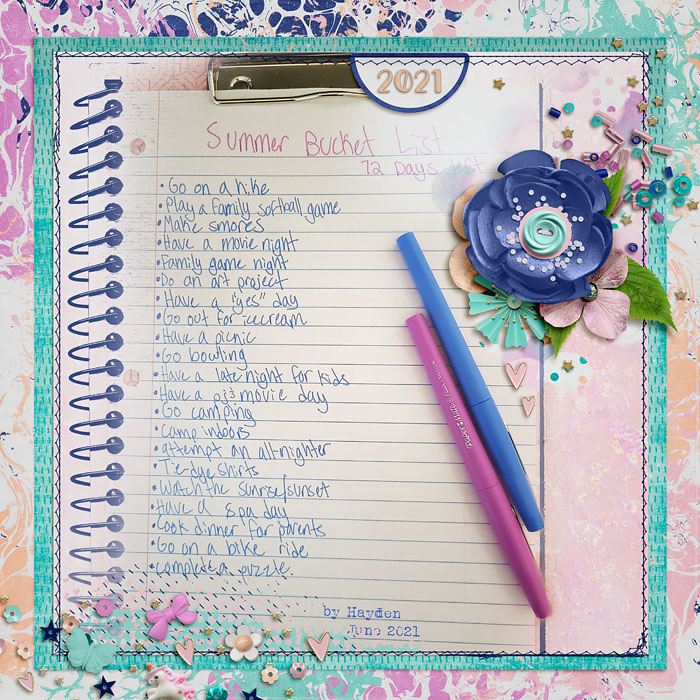 2021
Summer Bucket List
72 Days left
• Go on a hike
• Play a family softball game
• Make smores
• Have a movie night
• Family game night
• Do an art project
• Have a "yes" day
• Go out for icecream
• Have a picnic
• Go bowling
• Have a late night for kids
• Have a pj's movie day
• Go camping
• Camp indoors
• attempt an all-nighter
• Tie-dye shirts
• Watch the sunrise/sunset
• Have a spa day
• Cook dinner for parents
• Go on a bike ride
• Complete a puzzle
by Hayden
June 2021